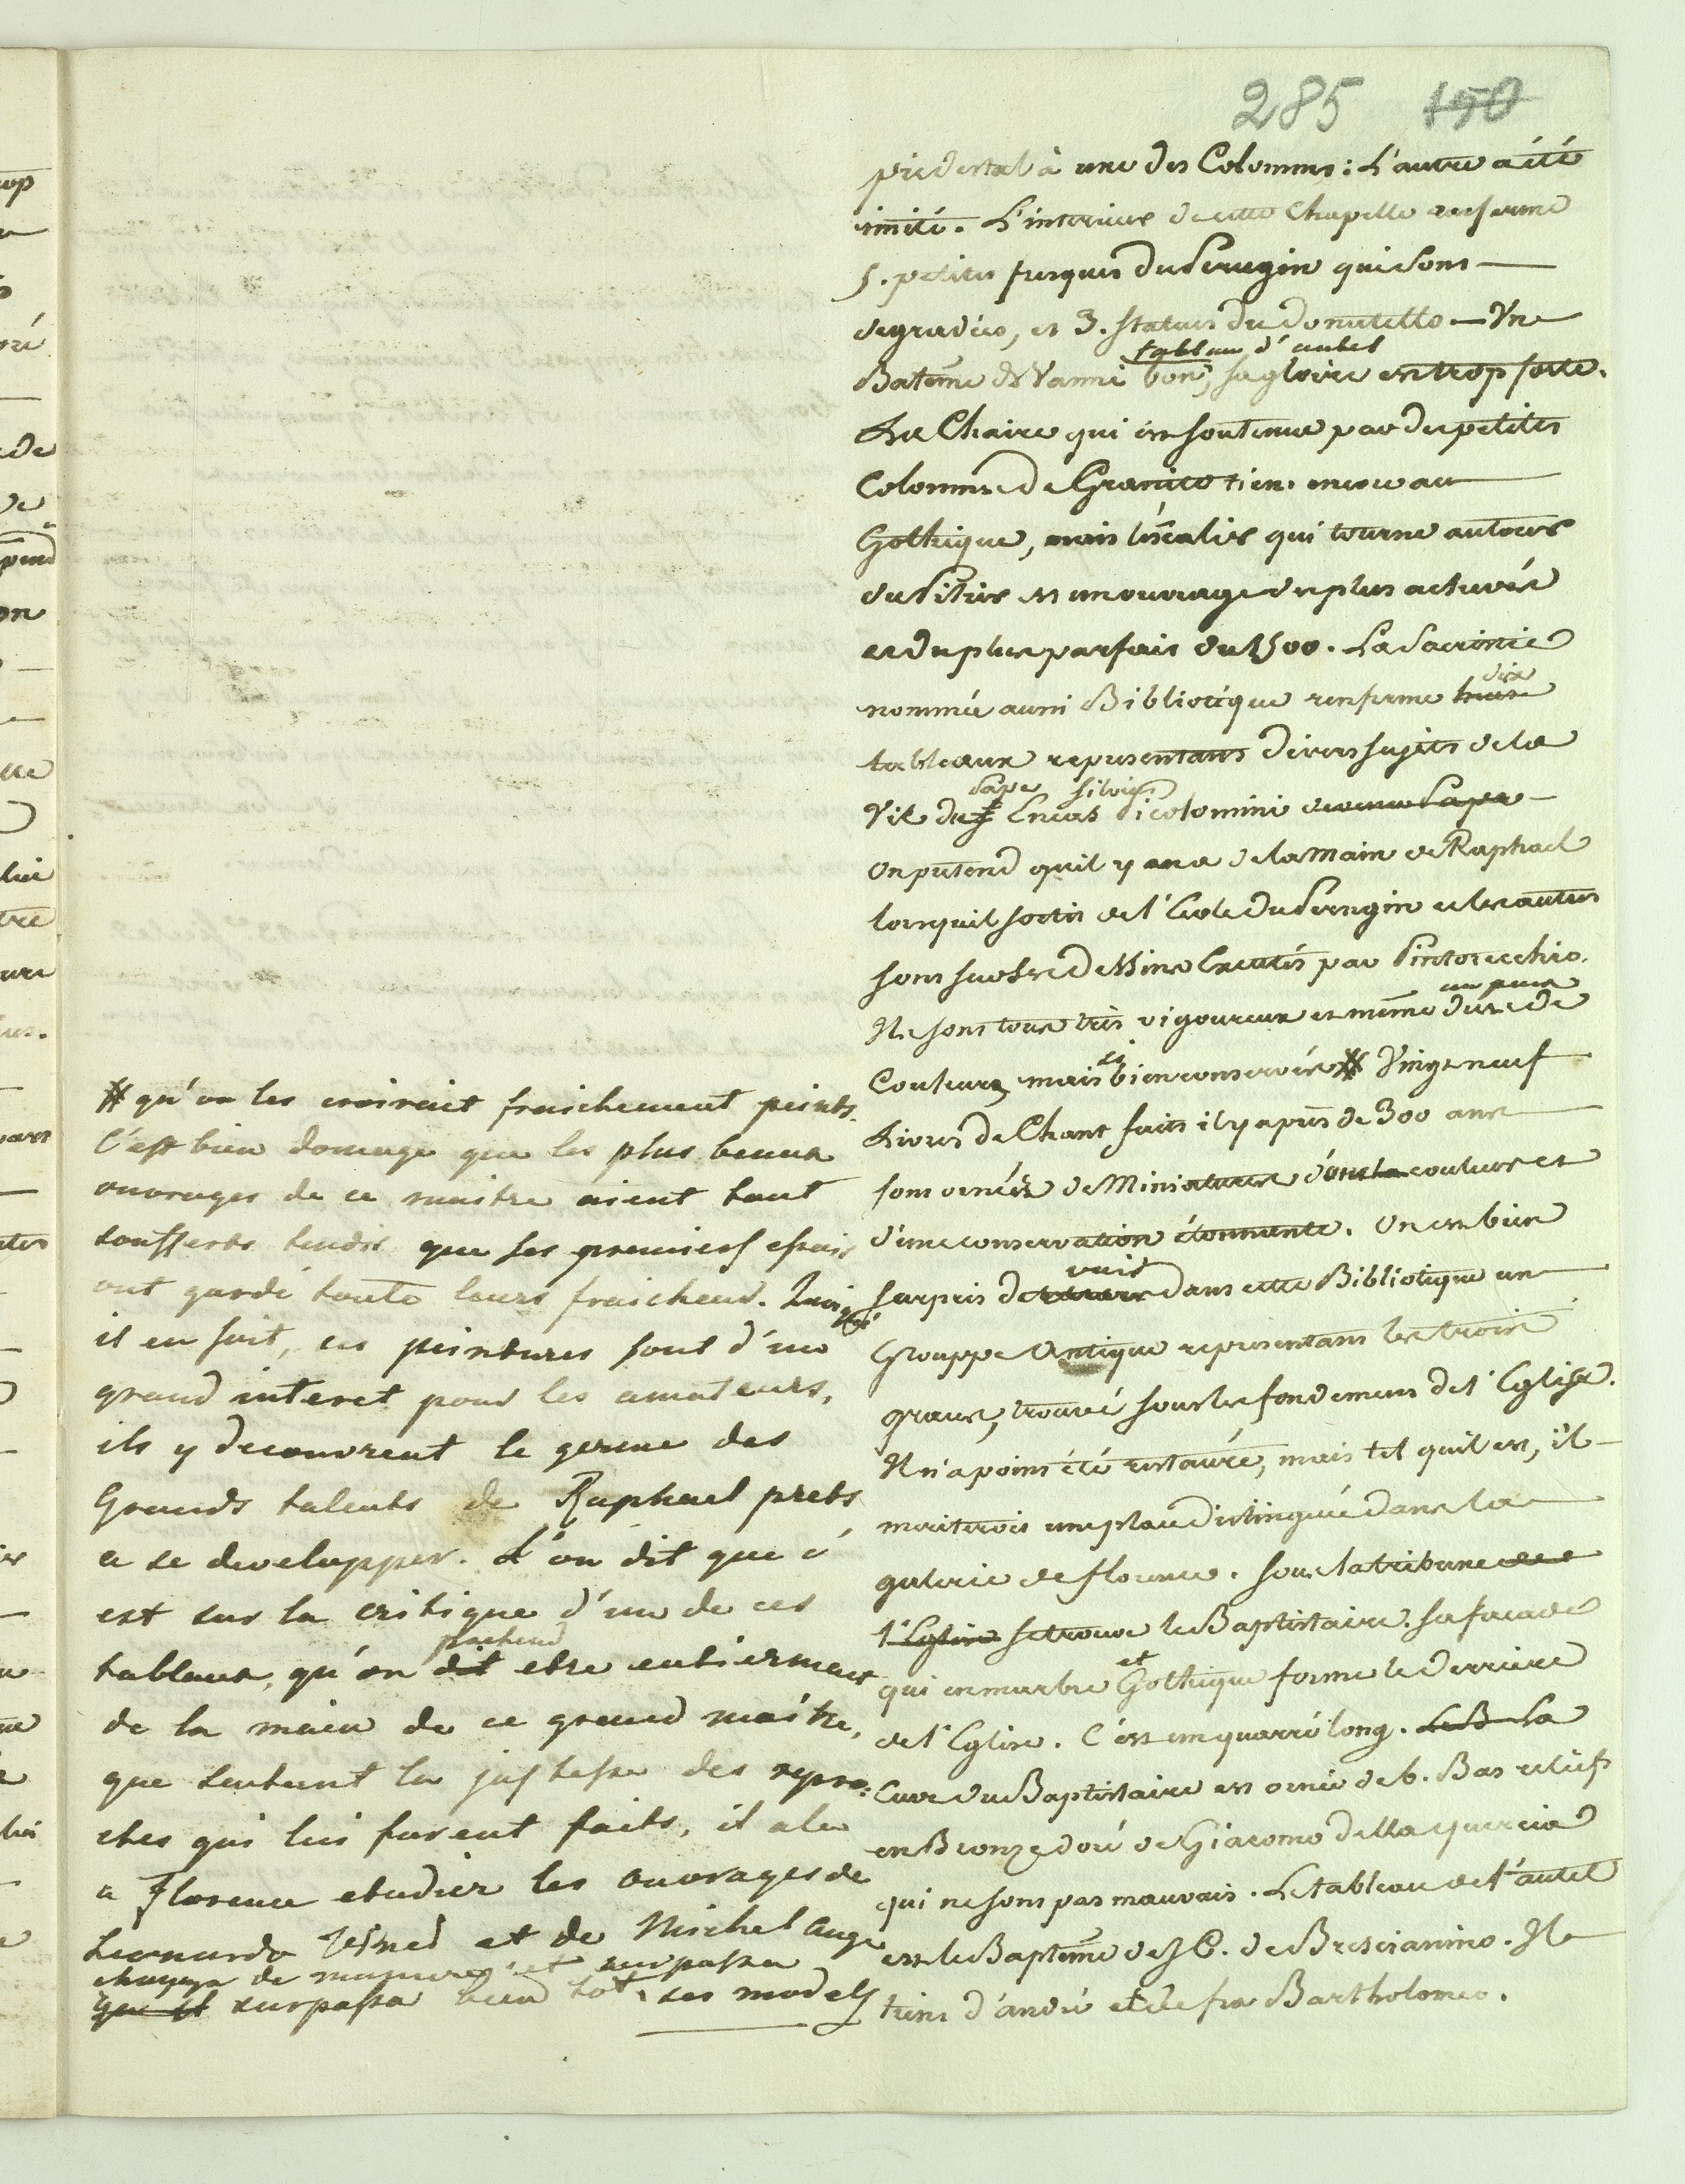 285 150
piedestal à une des Colomnes: L'autre a été
imité. L'interieur de cette Chapelle renferme
5. petites fresques du Perugin qui sont
degradées, et 3. statues du Donatello — Une
tableau d'autel
Batême de Vanni bon, sa gloire est trop forte.
La Chaire qui est soutenue par de petites
Colomnes de Granito tient encore au
Gothique, mais l'éscalier qui tourne autour
du Pilier est un ouvrage des plus achevés
et du plus parfait du 1500. La Sacristie
dix
nommée aussi Bibliotéque renferme huit
tableaux representants divers sujets de la
Pape Silvius
Vie du Eneas Picolomini Pape
On pretend qu'il y en a de la main de Raphael
lorsqu'il sortit de l'Ecole du Perugin et les autres
sont sur ses dessins Exécutés par Pintorecchio.
un peu
Ils sont tous très vigoureux et même durs de
si
Couleurs, mais bien conservés # Vingt neuf
Livres de Chant faits il y a près de 300 ans
sont ornées de Miniatures dont la couleur est
d'une conservation étonnante. On est bien
voir
surpris de dans cette Bibliotéque un
Grouppe Antique representant les trois
graces, trouvé sous les fondemens de l'Eglise.
Il n'a point été restauré, mais tel qu'il est, il
meriterois une place distinguée dans la
galerie de florence. Sous la tribune de
l'Eglise se trouve le Baptistaire. Sa facade
et
qui en marbre Gothique forme le derriere
de l'Eglise. C'est un quarré long. Le B La
Cuve du Baptistaire est ornée de 6. Bas reliefs
en Bronze doré de Giacomo della quercia
qui ne sont pas mauvais. Le tableau de l'autel
est le Baptême de J C. de Brescianino. Il
tient d'andré et de fra Bartholomeo.
# qu'on les croirait fraichement peints.
C'est bien domage que les plus beaux
ouvrages de ce maitre aient tant
soufferts tandis que ses premiers essais
ont gardé toute leurs fraicheur. Quoiqu'
il en soit, ces peintures sont d'un
grand interet pour les amateurs,
ils y decouvrent le germe des
Grands talents de Raphael prets
a se developper. L'on dit que c'
est sur la critique d'un de ces
pretend
tableaux, qu'on dit etre entierement
de la main de ce grand maitre,
que sentant la justesse des repro:
ches qui lui furent faits, il ala
a Florence etudier les ouvrages de
Leonardo Vinci et de Michel Ange
changea de maniere et surpassa
que il surpassa bien tot ses models